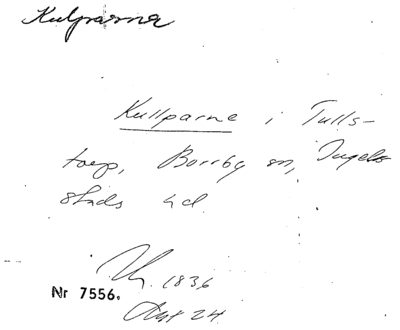 Kulparna
Kullparne i Tulls-
torp, Borrby sn, Ingel-
stads hd
1836
Nr 7556.
24